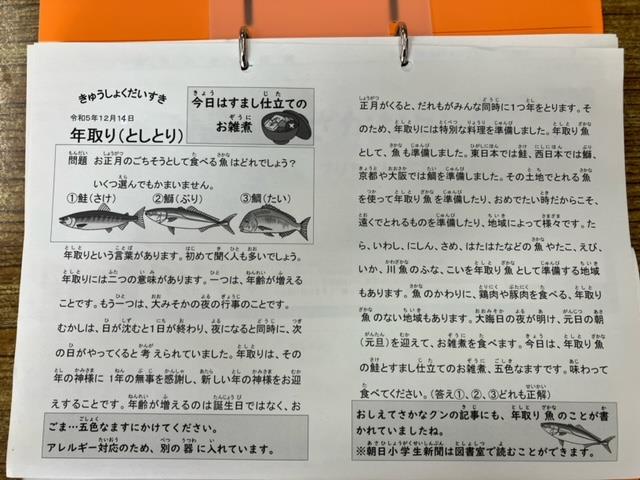 きゅうしょくだいすき
令和5年12月14日
年取り(としとり)
今日はすまし仕立ての
お雑煮
問題 お正月のごちそうとして食べる魚はどれでしょう?
いくつ選んでもかまいません。
①鮭(さけ) ②鰤(ぶり) ③鯛(たい)
年取りという言葉があります。初めて聞く人も多いでしょう。
年取りには二つの意味があります。一つは、年齢が増える
ことです。もう一つは、大みそかの夜の行事のことです。
むかしは、日が沈むと1日が終わり、夜になると同時に、次
の日がやってくると考えられていました。年取りは、その
年の神様に1年の無事を感謝し、新しい年の神様をお迎
えすることです。年齢が増えるのは誕生日ではなく、お
ごま…五色なますにかけてください。
アレルギー対応のため、別の器に入れています。
正月がくると、だれもがみんな同時に1つ年をとります。そ
のため、年取りには特別な料理を準備しました。年取り魚
として、魚も準備しました。東日本では鮭、西日本では鰤、
京都や大阪では鯛を準備しました。その土地でとれる魚
を使って年取り魚を準備したり、おめでたい時だからこそ、
遠くでとれるものを準備したり、地域によって様々です。た
ら、いわし、にしん、さめ、はたはたなどの魚やたこ、えび、
いか、川魚のふな、こいを年取り魚として準備する地域
もあります。魚のかわりに、鶏肉や豚肉を食べる、年取り
魚のない地域もあります。大晦日の夜が明け、元日の朝
(元旦)を迎えて、お雑煮を食べます。今日は、年取り魚
の鮭とすまし仕立てのお雑煮、五色なますです。味わって
食べてください。(答え①、②、③どれも正解)
おしえてさかなクンの記事にも、年取り魚のことが書
かれていましたね。
※朝日小学生新聞は図書室で読むことができます。